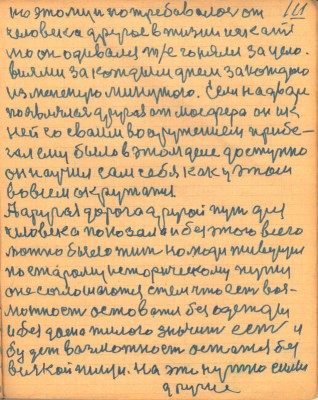 111
но этому и потребовалося от
человека другое в жизни искати
мо он одевался т/е гоняли за чело.
виями за каждым днем за каждою
изменетую минутого. Если на дворе
появлялся другая атмосфера он к
ней со своим воружением прибе-
гал ему было в этом деле доступно
он научил сам себя как у этом
вовсем окружатя.
А другая дорога другой пут для
человека показала и без этого всего
можно было жит но люди живущи
по старому историческому пути
оне соглошаются с тем что ест воз-
можност остоватя без одежди
и без дома жилого значит ест и
будет возможност остатся без
всякой пищи. На эти нужно силы
другие